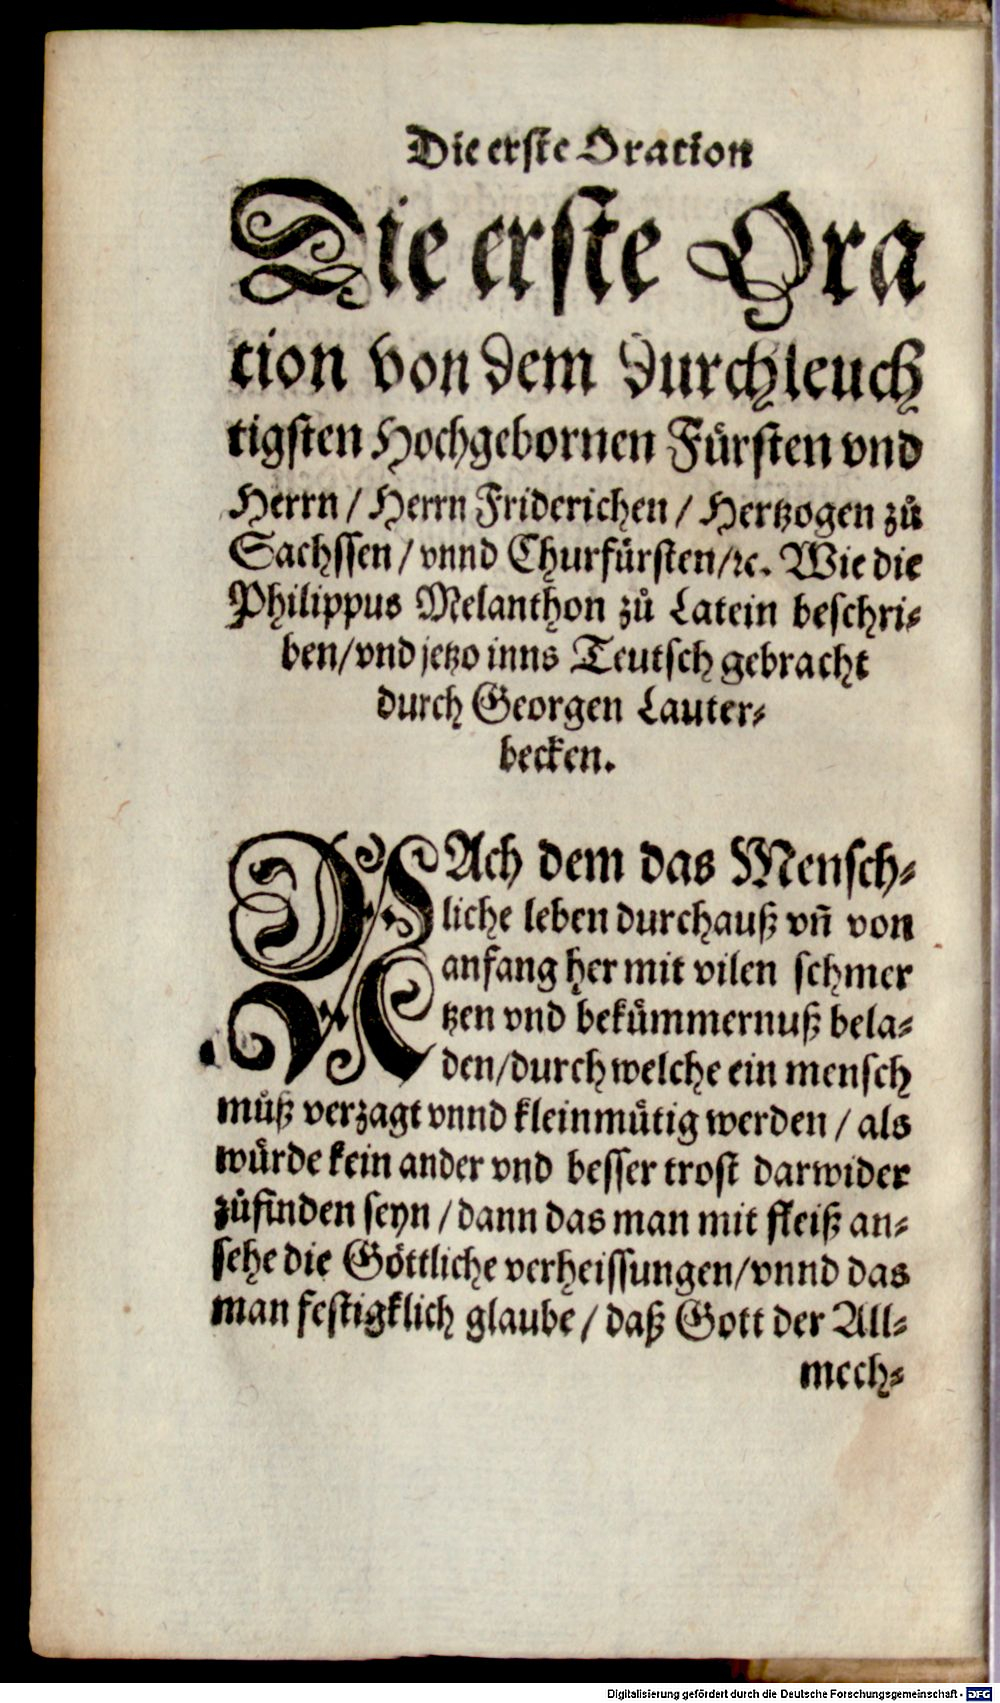 Die erste Oration
Die erste Ora
tion von dem durchleuch
tigsten Hochgebornen Fürsten vnd
Herrn / Herrn Friderichen / Hertzogen zů
Sachssen / vnnd Churfürsten /ꝛc. Wie die
Philippus Melanthon zů Latein beschri⸗
ben / vnd jetzo inns Teutsch gebracht
durch Georgen Lauter⸗
becken.
NAch dem das Mensch⸗
liche leben durchauß vñ von
anfang her mit vilen schmer
tzen vnd bekümmernuß bela⸗
den / durch welche ein mensch
můß verzagt vnnd kleinmütig werden / als
würde kein ander vnd besser trost darwider
zůfinden seyn / dann das man mit fleiß an⸗
sehe die Göttliche verheissungen / vnnd das
man festigklich glaube / daß Gott der All⸗
mech⸗
Digitalisierung gefördert durch die Deutsche Forschungsgemeinschaft - DFG